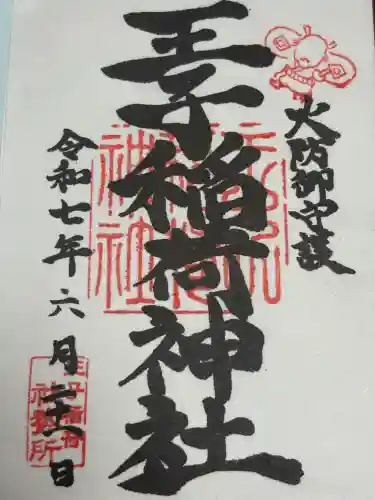 火防御守護
王子稲荷神社
令和七年六月二十一日
王子稲荷
社務所